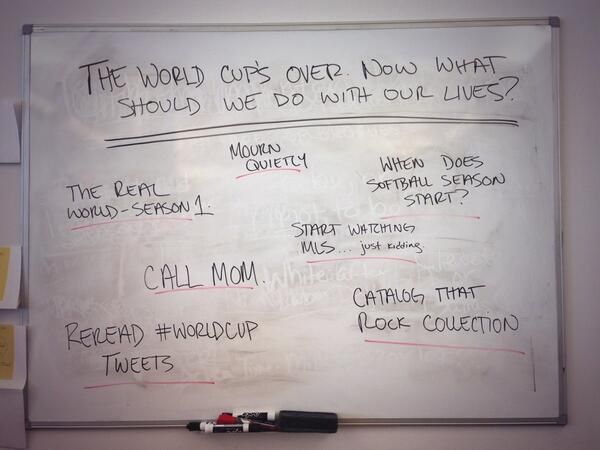 THE WORLD CUP'S OVER. NOW WHAT
SHOULD WE DO WITH OUR LIVES?
MOURN
QUIETLY
WHEN DOES
SOFTBALL SEASON
START?
THE REAL
WORLD-SEASON 1.
START WATCHING
MLS... just kidding.
CALL MOM.
CATALOG THAT
ROCK COLLECTION
REREAD #WORLDCUP
TWEETS